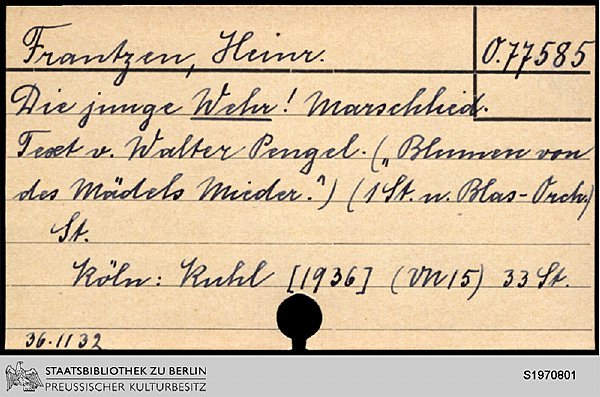 Frantzen, Heinr.
O.77585
Die junge Wehr! Marschlied.
Text v. Walter Pengel. („Blumen von
des Mädels Mieder.") (1 St. u. Blas-Orch.)
St.
Köln: Kuhl [1936] (VN 15) 33 St.
36.1132
STAATSBIBLIOTHEK ZU BERLIN
PREUSSISCHER KULTURBESITZ
S1970801